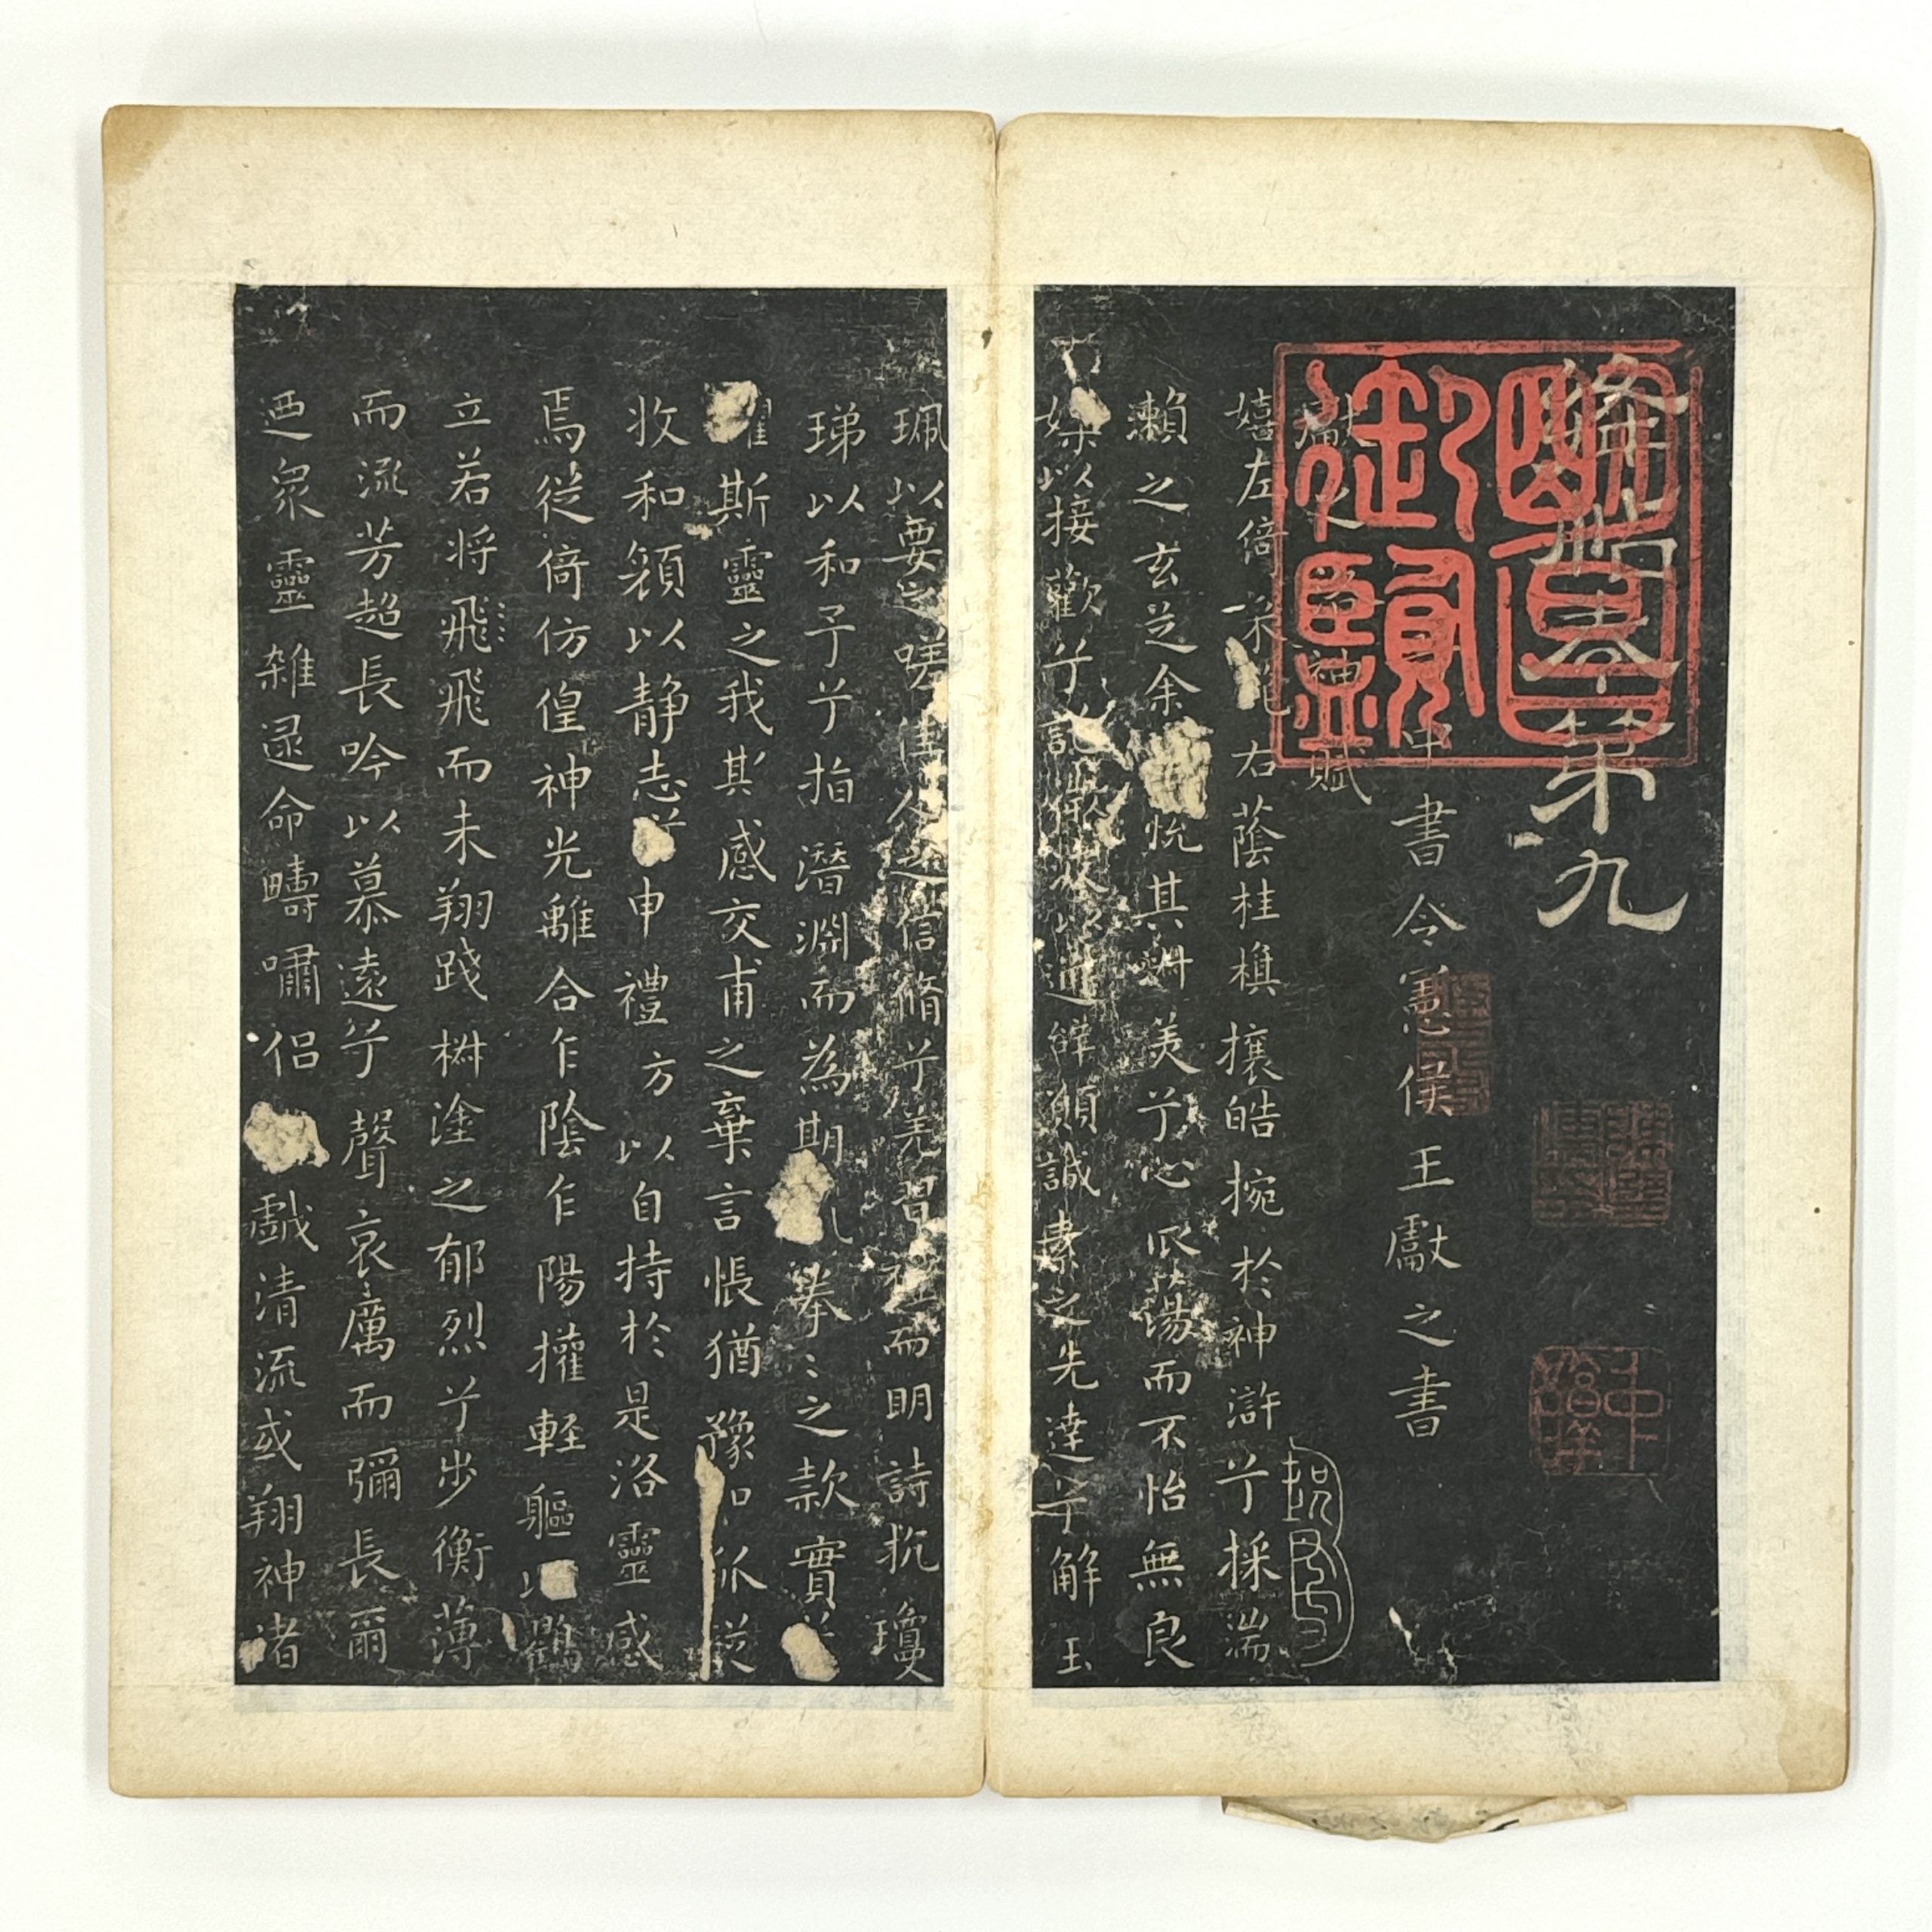 絳帖卷第九
明昌
御覽
中書令憲侯王獻之書
獻之洛神賦
嬉左倚采旄右蔭桂櫋攘皓捥於神滸兮採湍
瀨之玄芝余悅其淋美兮心振蕩而不怡無良
媒以接歡兮託微波以通辭願誠素之先達兮解玉
珮以要之嗟佳人之信脩兮羌習禮而明詩抗瓊
珶以和予兮指潛淵而為期拳〻之款實兮
懼斯靈之我欺感交甫之棄言悵猶豫而狐疑
收和顏以静志兮申禮方以自持於是洛靈感
焉徙倚仿偟神光離合乍陰乍陽擢輕軀以鶴
立若將飛飛而未翔踐椒塗之郁烈兮步衡薄
而流芳超長吟以慕遠兮聲哀厲而彌長爾
迺眾靈雜遝命疇嘯侶戲清流或翔神渚